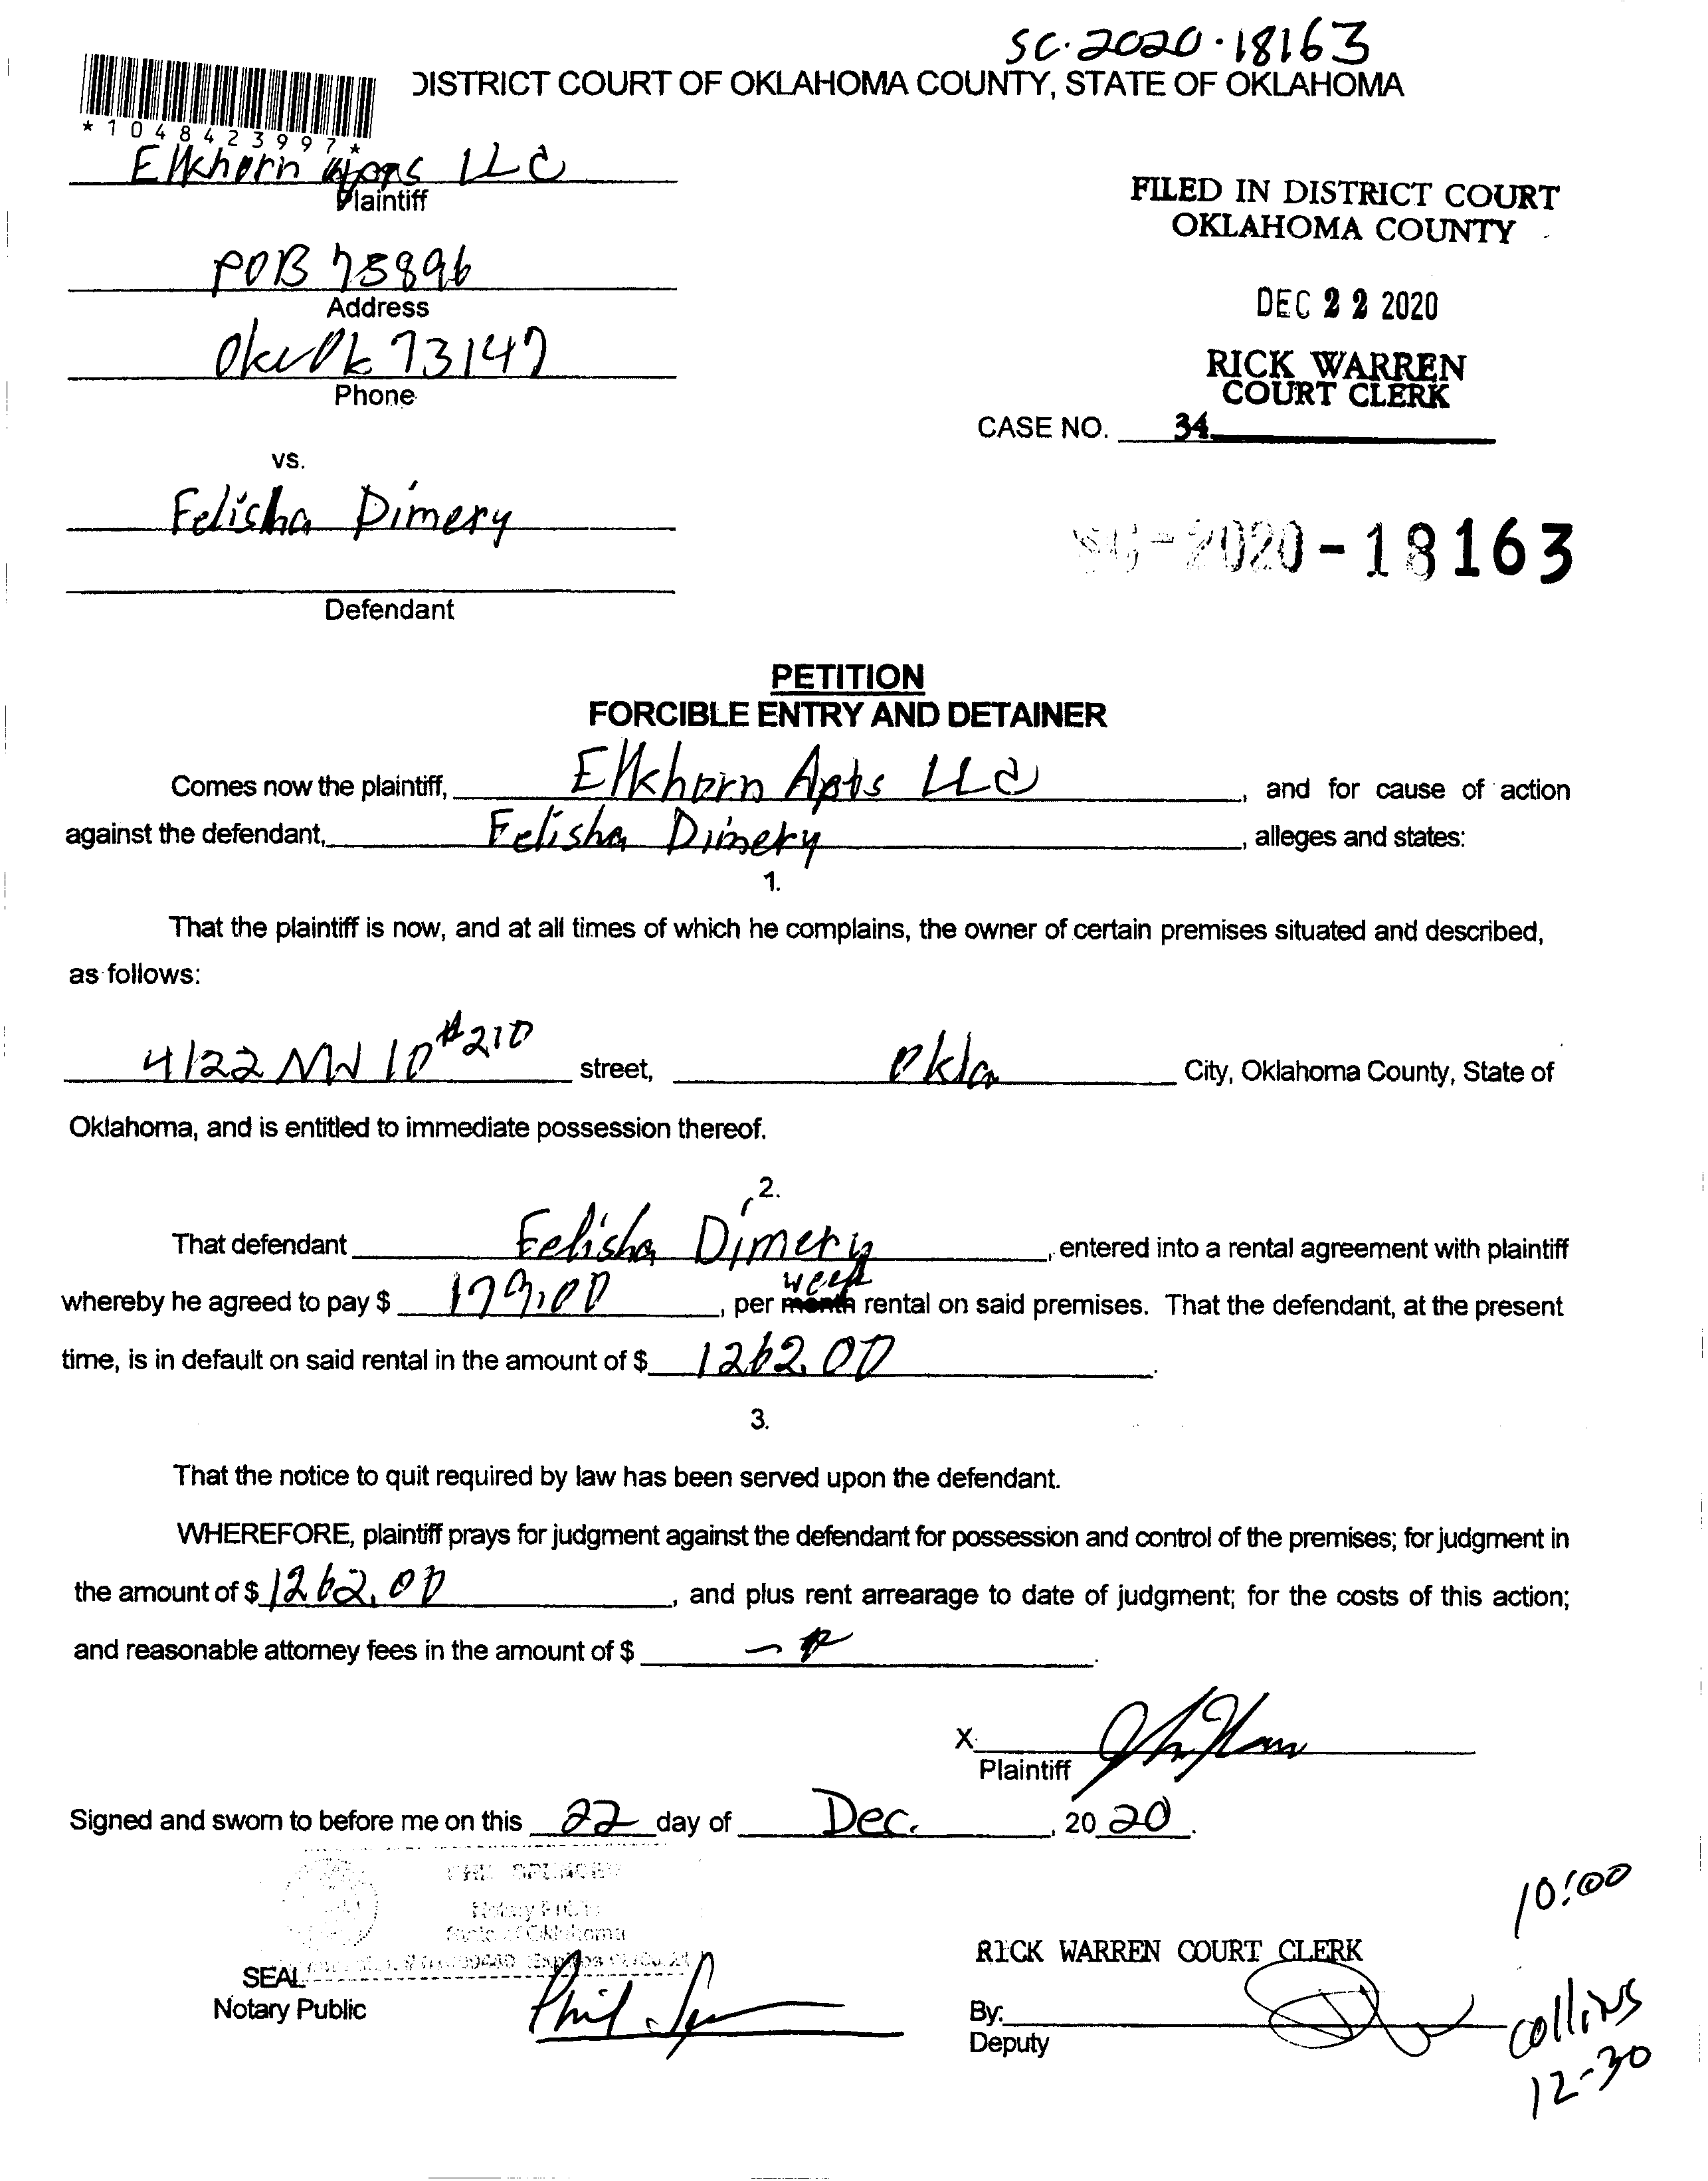 SC-2020-18163
DISTRICT COURT OF OKLAHOMA COUNTY, STATE OF OKLAHOMA
*1048423997*
Elkhorn Apts LLC
Plaintiff
FILED IN DISTRICT COURT
OKLAHOMA COUNTY
POB 75896
Address
DEC 22 2020
OKC OK 73147
Phone
RICK WARREN
COURT CLERK
CASE NO. 34
vs.
Felisha Dimery
SC-2020-18163
Defendant
PETITION
FORCIBLE ENTRY AND DETAINER
Comes now the plaintiff, Elkhorn Apts LLC, and for cause of action
against the defendant, Felisha Dimery, alleges and states:
1.
That the plaintiff is now, and at all times of which he complains, the owner of certain premises situated and described,
as follows:
4122 NW 10 #210 street, Okla City, Oklahoma County, State of
Oklahoma, and is entitled to immediate possession thereof.
2.
That defendant Felisha Dimery, entered into a rental agreement with plaintiff
whereby he agreed to pay $ 179.00, per month week rental on said premises. That the defendant, at the present
time, is in default on said rental in the amount of $ 1262.00.
3.
That the notice to quit required by law has been served upon the defendant.
WHEREFORE, plaintiff prays for judgment against the defendant for possession and control of the premises; for judgment in
the amount of $ 1262.00, and plus rent arrearage to date of judgment; for the costs of this action;
and reasonable attorney fees in the amount of $
X
Plaintiff
Signed and sworn to before me on this 22 day of Dec., 20 20.
PHIL SPENCER
Notary Public
State of Oklahoma
10:00
RICK WARREN COURT CLERK
SEAL
Notary Public
Phil
By:
Deputy
Collins
12-30